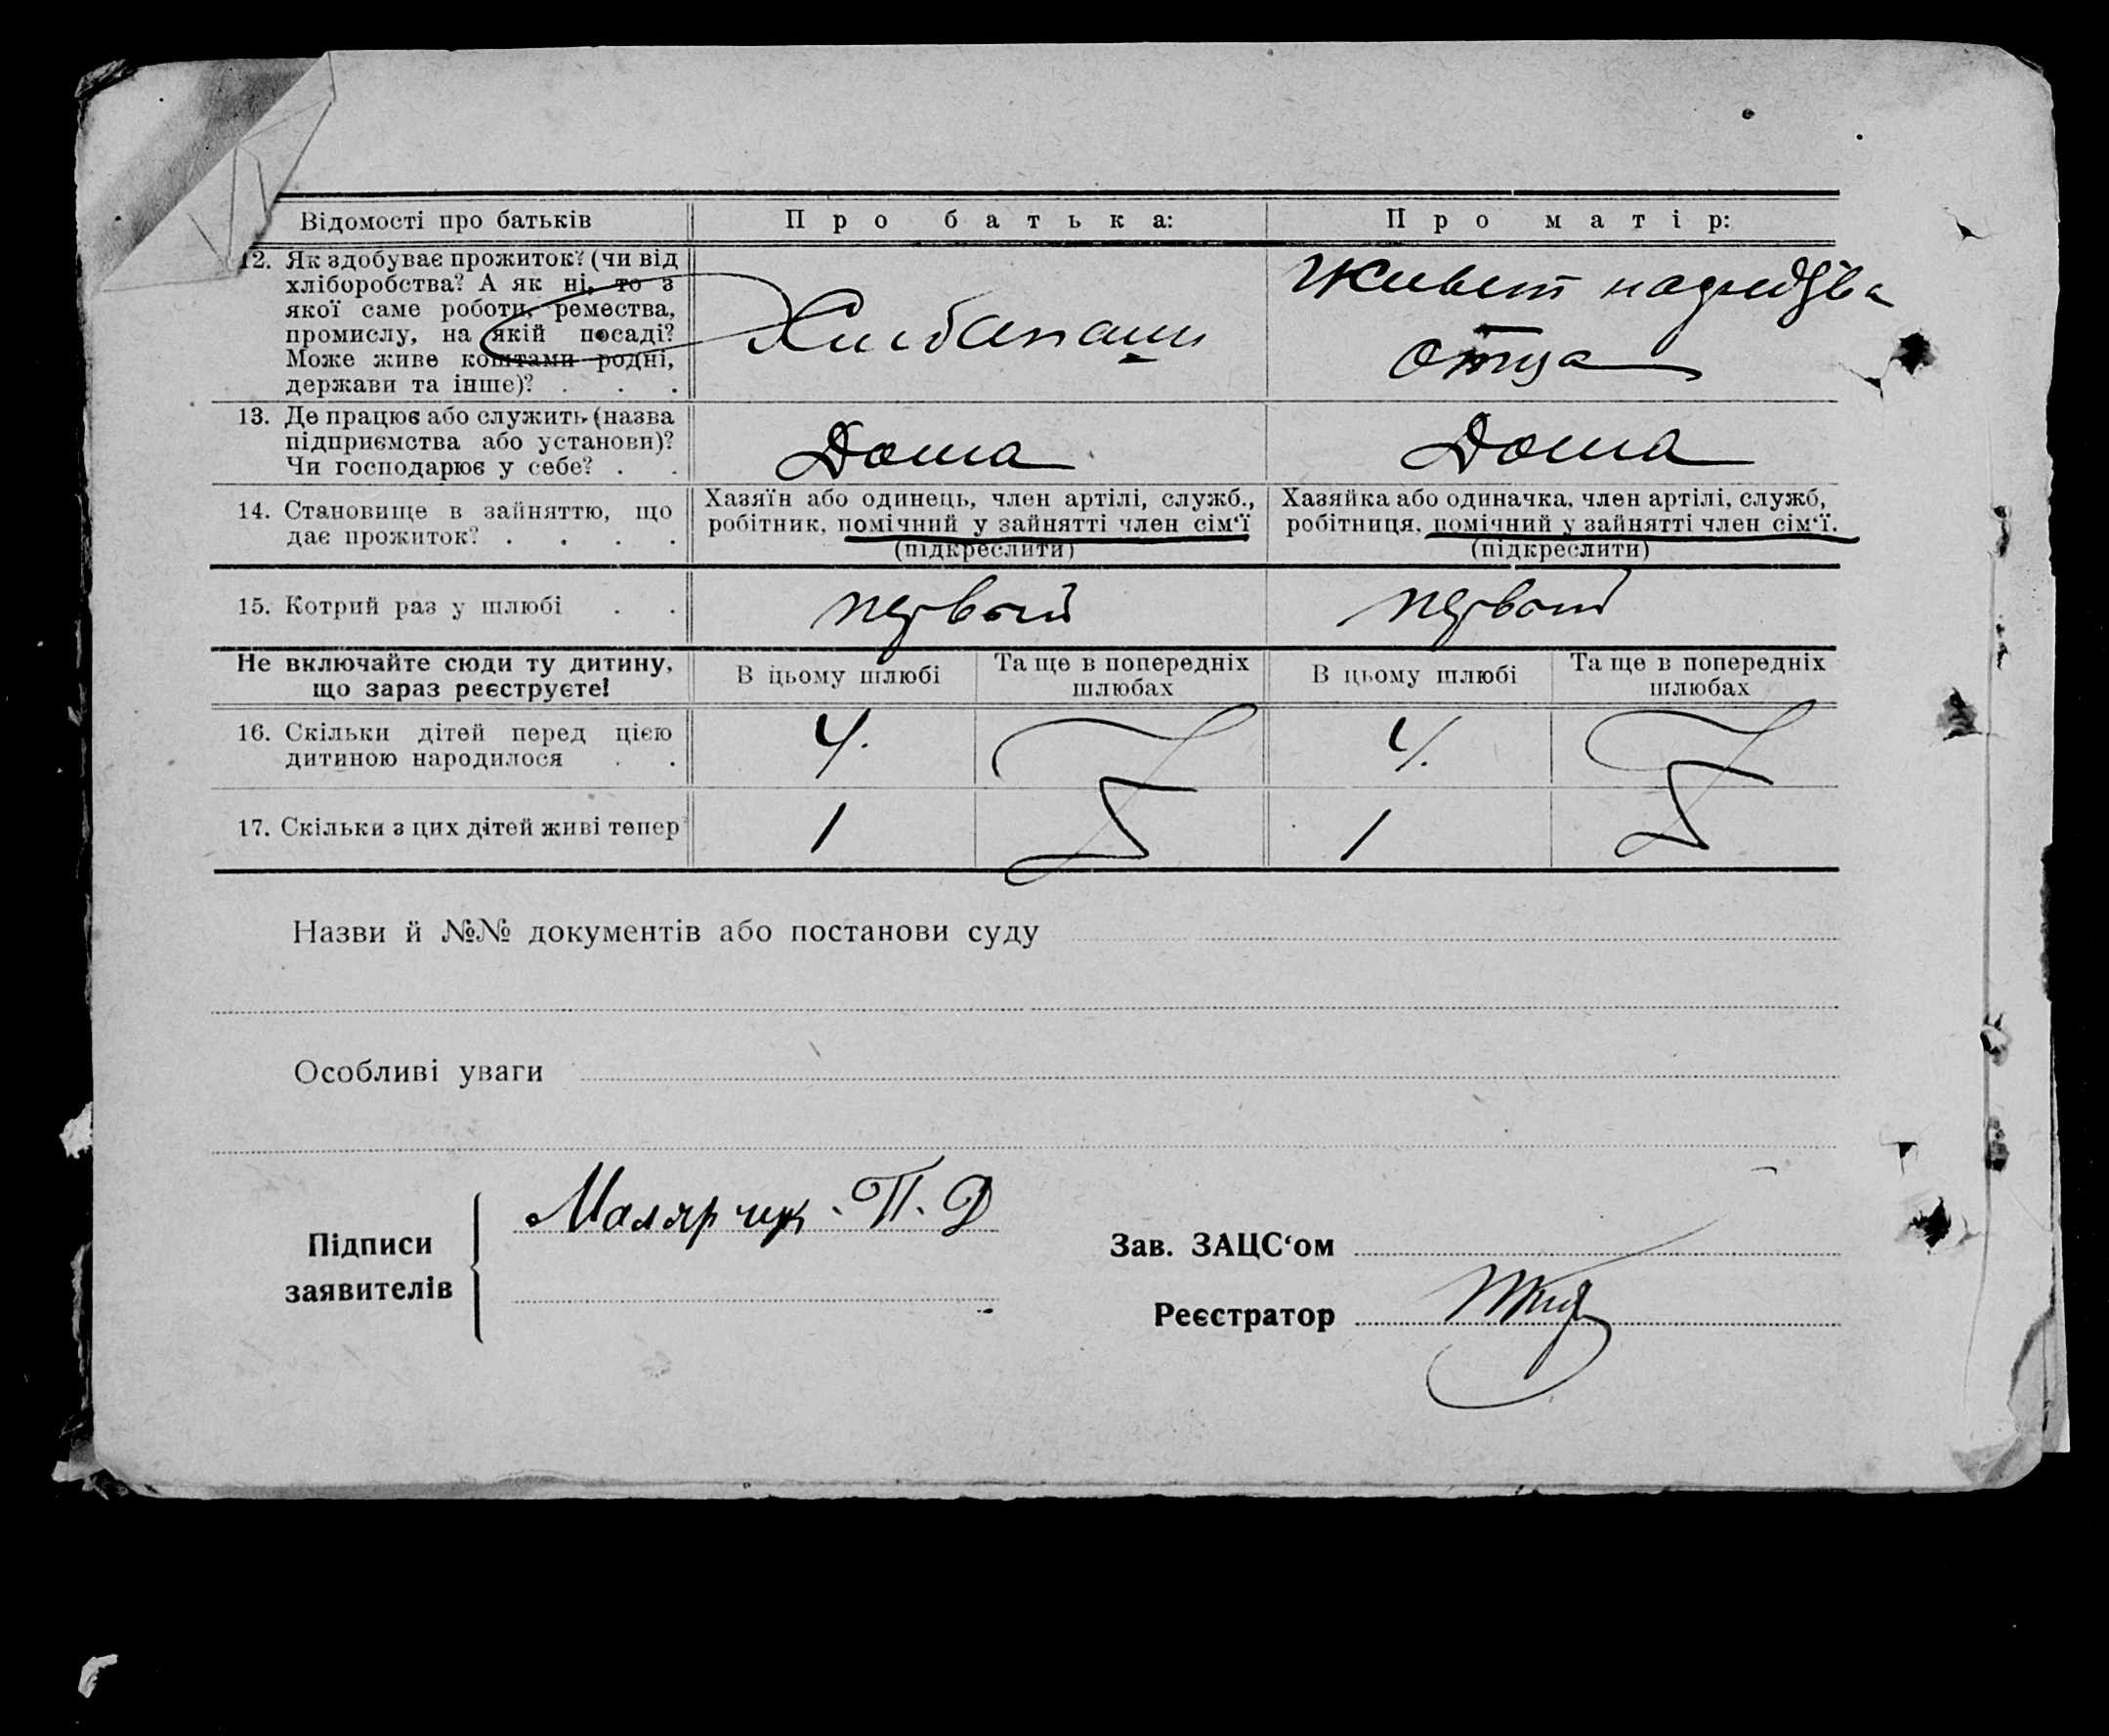 Відомості про батьків
Про батька:
Про матір:
12. Як здобуває прожиток? (чи від
хліборобства? А як ні, то з
якої саме роботи, ремества,
промислу, на якій посаді?
Може живе коштами родні,
держави та інше)? . . .
Живет на
отца
13. Де працює або служить (назва
підприємства або установи)?
Чи господарює у себе? . .
Дома
Дома
14. Становище в зайняттю, що
дає прожиток? . . . .
Хазяїн або одинець, член артілі, служб.,
робітник, помічний у зайнятті член сім‘ї
(підкреслити)
Хазяйка або одиначка, член артілі, служб,
робітниця, помічний у зайнятті член сім‘ї.
(підкреслити)
15. Котрий раз у шлюбі . .
первый
первый
Не включайте сюди ту дитину,
що зараз реєструєте!
В цьому шлюбі
Та ще в попередніх
шлюбах
В цьому шлюбі
Та ще в попередніх
шлюбах
16. Скільки дітей перед цією
дитиною народилося . .
4.
4.
17. Скільки з цих дітей живі тепер
1
1
Назви й №№ документів або постанови суду
Особливі уваги
Підписи
заявителів
Малярчук. П. Д
Зав. ЗАЦС‘ом
Реєстратор